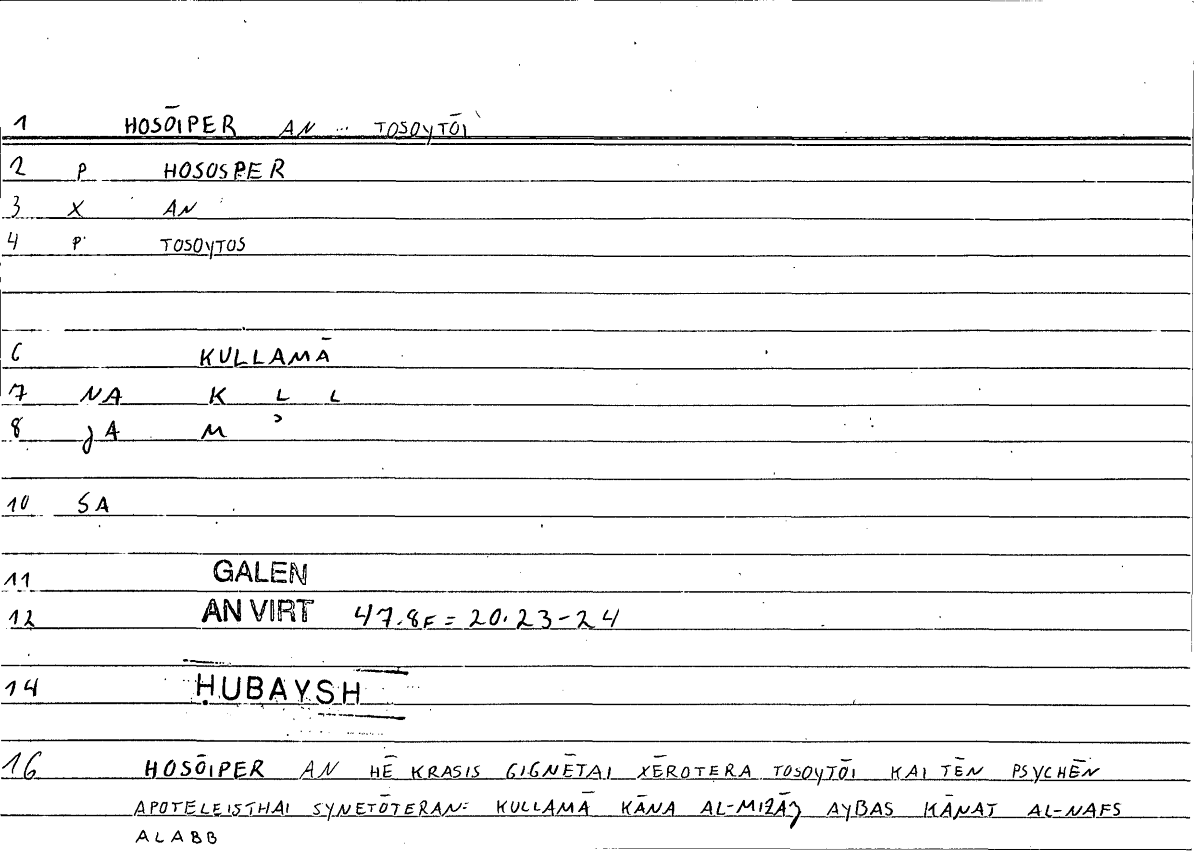 1 HOSŌIPER AN ... TOSOYTŌI
2 P HOSOSPER
3 X AN
4 P TOSOYTOS
6 KULLAMĀ
7 NA K L L
8 JA M ʾ
10 SA
11 GALEN
12 AN VIRT 47.8F = 20.23-24
14 ḤUBAYSH
16 HOSŌIPER AN HĒ KRASIS GIGNĒTAI XĒROTERA TOSOYTŌI KAI TĒN PSYCHĒN
APOTELEISTHAI SYNETŌTERAN: KULLAMĀ KĀNA AL-MIZĀJ AYBAS KĀNAT AL-NAFS
ALABB